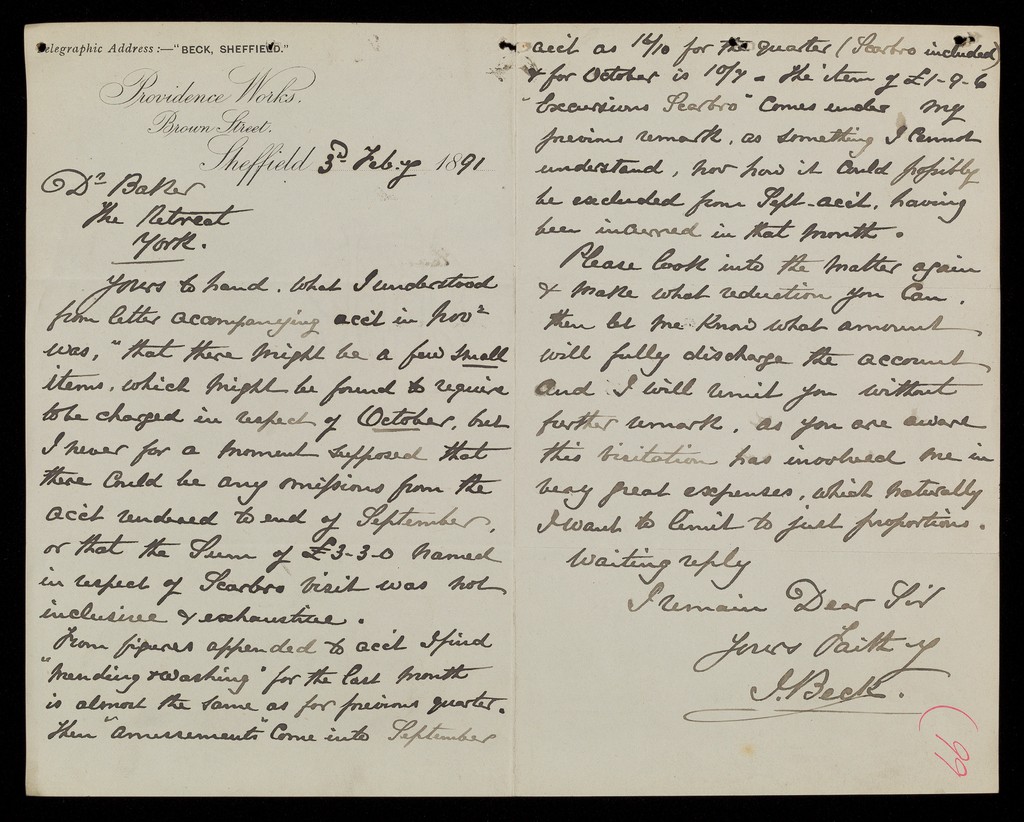 Telegraphic Address:—"BECK, SHEFFIELD."
Providence Works.
Brown Street.
Sheffield 3rd Feb.y 1891
Dr Baker
The Retreat
York.
Yours to hand. What I understood
from letter accompanying acct in Novr
was, "that there might be a few small
items, which might be found to require
to be charged in respect of October, but
I never for a moment supposed that
there could be any omissions from the
acct rendered to end of September,
or that the Sum of £3-3-0 named
in respect of Scarbro visit was not
inclusive & exhaustive.
From figures appended to acct I find
"Mending & washing" for the last month
is almost the same as for previous quarter.
Then "amusements" Come into September
acct as 14/10 for the quarter (Scarbro included)
& for October is 10/7. The item of £1-9-6
"Excursions Scarbro" Comes under my
previous remark, as something I cannot
understand, nor how it could possibly
be excluded from Sept-acct, having
been incurred in that month.
Please look into the matter again
& make what reduction you can,
then let me know what amount
will fully discharge the account
and I will remit you without
further remark, as you are aware
this visitation has involved me in
very great expenses, which naturally
I want to limit to just proportions.
Waiting reply
I remain Dear Sir
Yours Faithy
J. Beck.
66